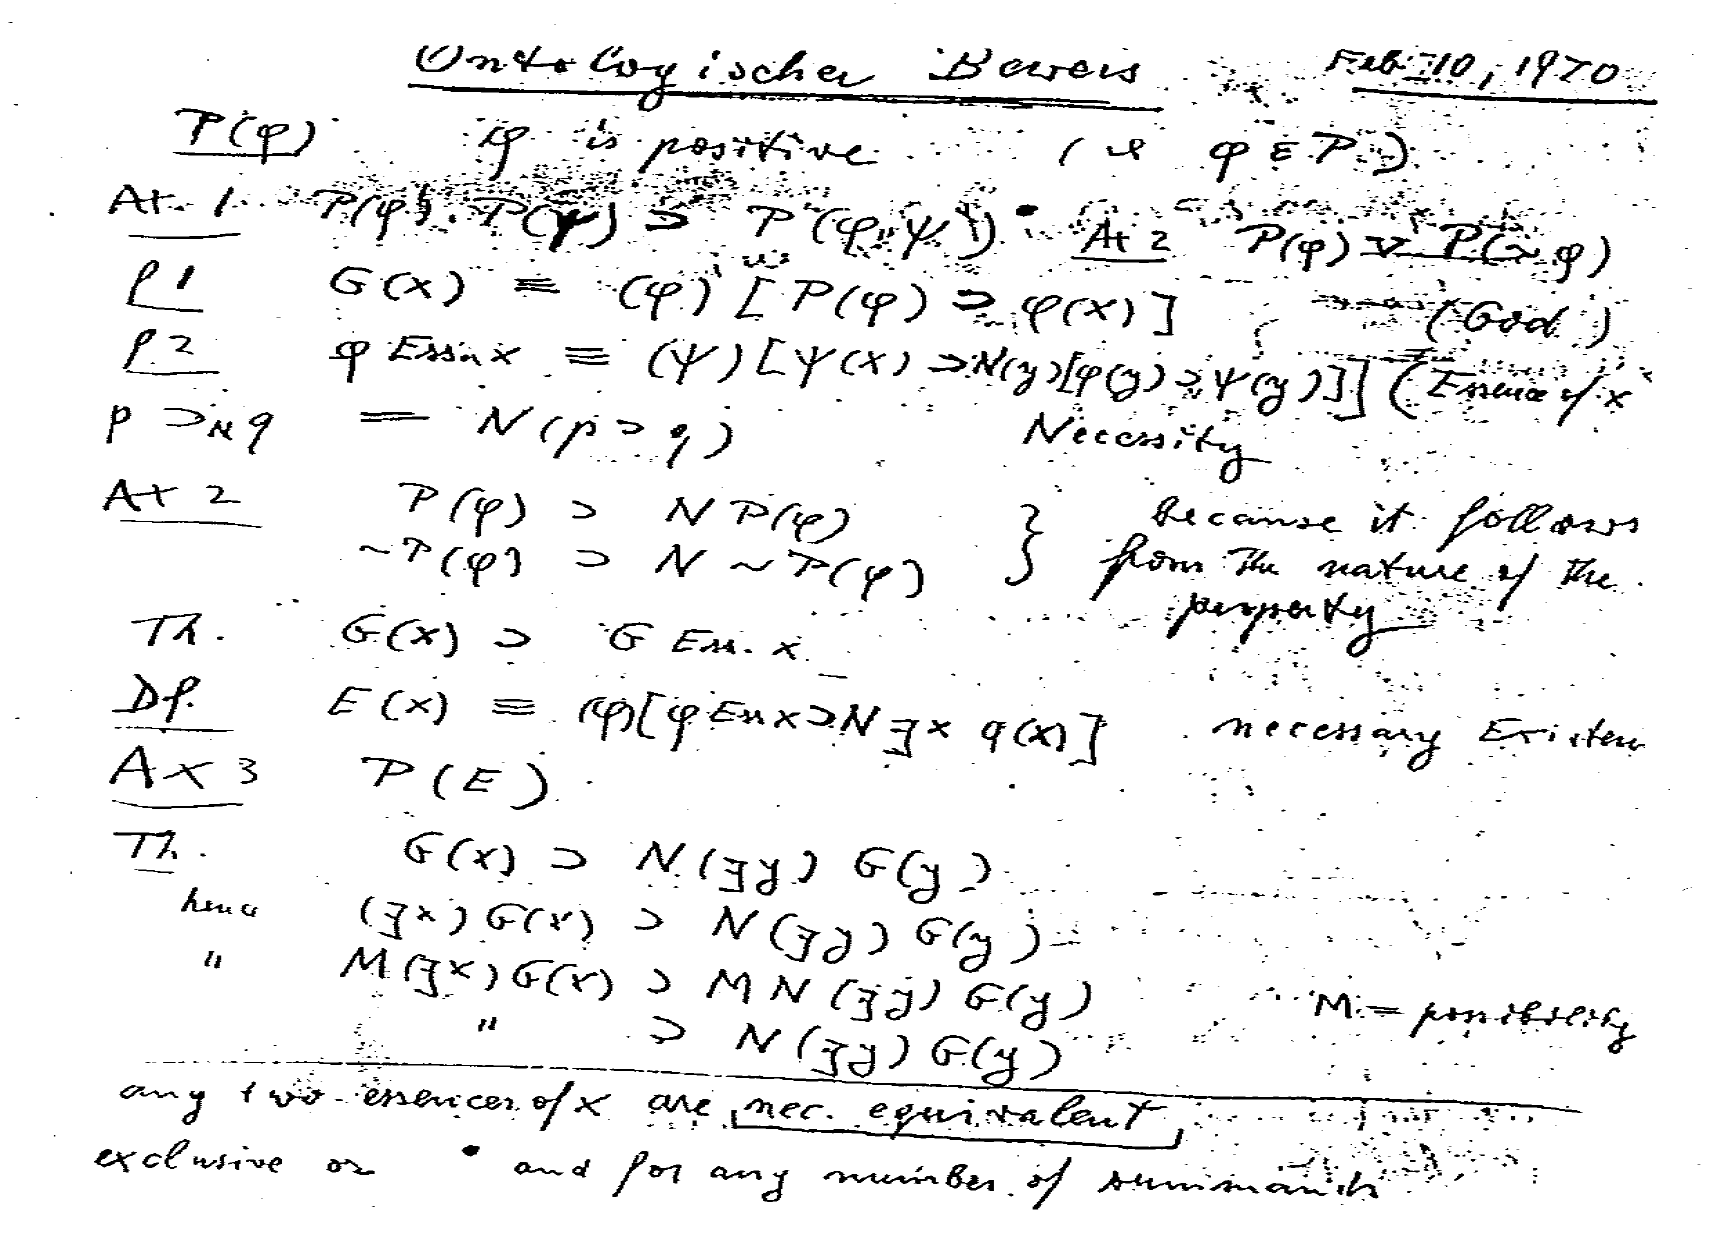 Ontologischer Beweis Feb 10, 1970
P(φ) φ is positive (or φ ε P.)
At. 1 P(φ).P(ψ) ⊃ P(φ.ψ)• At 2 P(φ) ∨ P(~φ)
P1 G(x) ≡ (φ)[P(φ) ⊃ φ(x)] (God)
P2 φ Ess.x ≡ (ψ)[ψ(x) ⊃ N(y)[φ(y) ⊃ ψ(y)]] (Essence of x
p ⊃N q = N(p ⊃ q) Necessity
At 2 P(φ) ⊃ N P(φ) } because it follows
~P(φ) ⊃ N ~P(φ) } from the nature of the
property
Th. G(x) ⊃ G Ess. x
Df. E(x) ≡ (φ)[φ Ess x ⊃ N ∃x φ(x)] necessary Existen
Ax 3 P(E)
Th. G(x) ⊃ N(∃y) G(y)
hence (∃x) G(x) ⊃ N(∃y) G(y)
" M(∃x) G(x) ⊃ M N(∃y) G(y) M = possibility
" ⊃ N(∃y) G(y)
any two essences of x are nec. equivalent
exclusive or • and for any number of summands